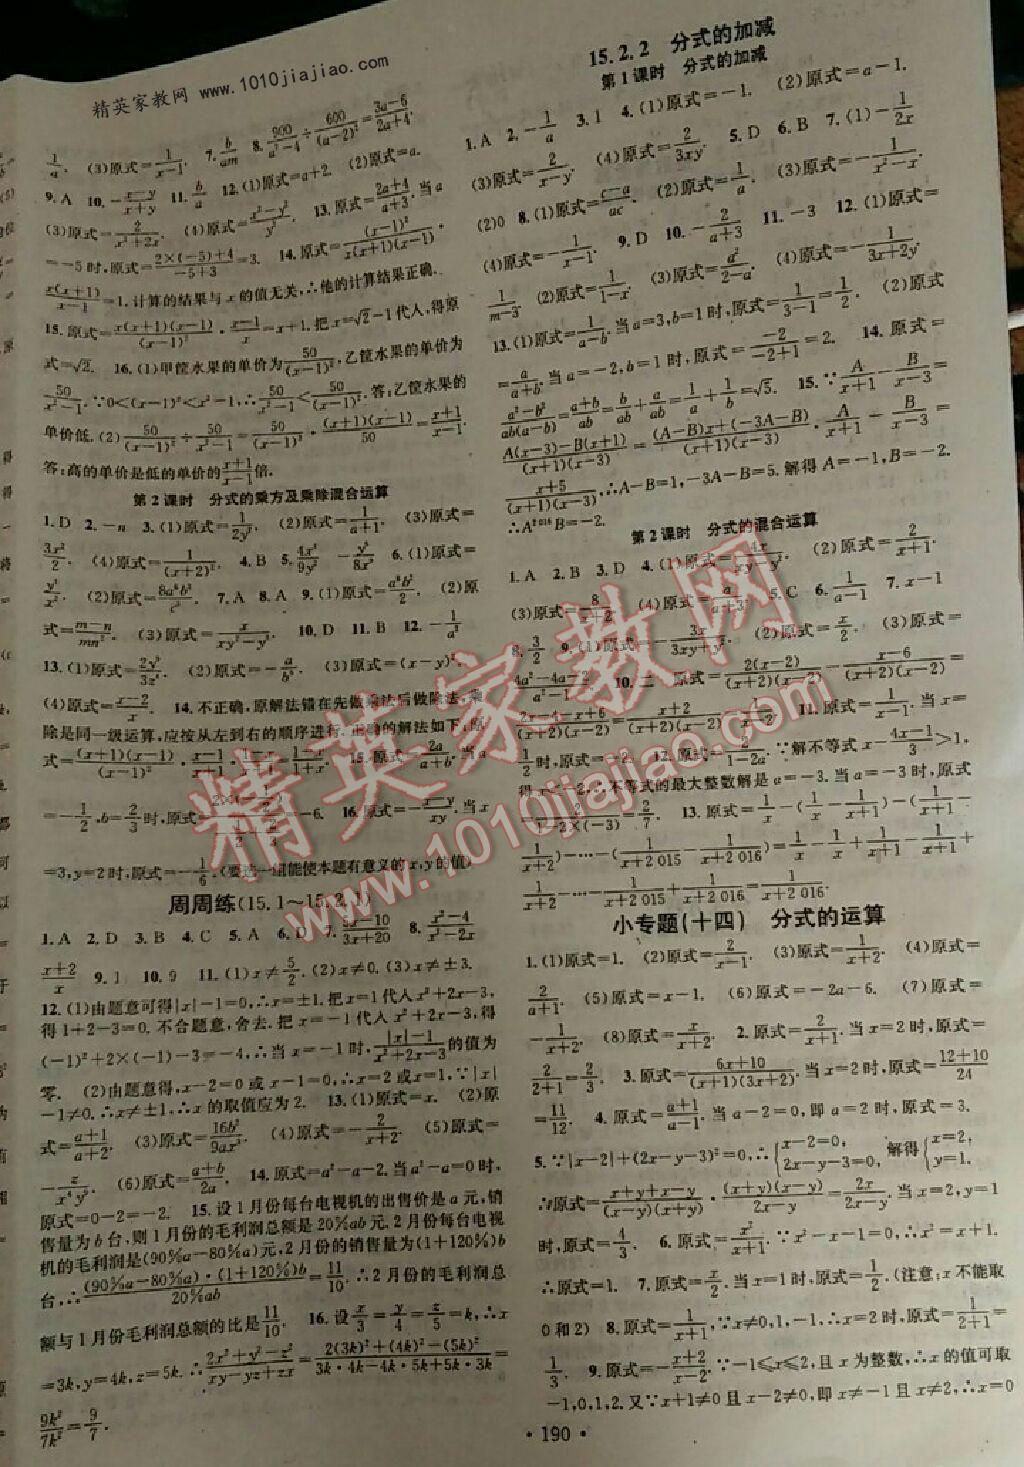 精英家教网 www.1010jiajiao.com
1/a. (3)原式=1/(x-1). 7. b/am 8. 900/(a²-4)÷600/(a-2)²=(3a-6)/(2a+4).
9. A 10. -(x-y)/(x+y) 11. b/a 12. (1)原式=a+2. (2)原式=a.
(3)原式=2/(x²+2x). (4)原式=(x²-y²)/y². 13. 原式=(2a+4)/(a+3). 当a
=-5时,原式=(2×(-5)+4)/(-5+3)=3. 14. 原式=(x-1)²/((x+1)(x-1))·
x(x+1)/(x-1)=1. 计算的结果与x的值无关,∴他的计算结果正确.
15. 原式=x(x+1)(x-1)/(x-1)²·(x-1)/x=x+1. 把x=√2-1代入,得原
式=√2. 16. (1)甲筐水果的单价为50/(x-1)²,乙筐水果的单价为
50/(x²-1). ∵0<(x-1)²<x²-1,∴50/(x²-1)<50/(x-1)². 答:乙筐水果的
单价低. (2)50/(x-1)²÷50/(x²-1)=50/(x-1)²·(x+1)(x-1)/50=(x+1)/(x-1).
答:高的单价是低的单价的(x+1)/(x-1)倍.
第2课时 分式的乘方及乘除混合运算
1. D 2. -n 3. (1)原式=1/(2y³). (2)原式=1/(a+1). (3)原式=
3x²/2. (4)原式=1/(x+2)². 4. B 5. 4x²/9y² -y³/8x³ 6. (1)原式=
y²/x². (2)原式=8a⁶b³/c³. 7. A 8. A 9. (1)原式=a⁸b²/2. (2)原
式=(m-n)/mn². (3)原式=x/(xy²-y³). 10. D 11. B 12. -1/a³
13. (1)原式=2y³/3z². (2)原式=-a/b³. (3)原式=(x-y)².
(4)原式=(x-2)/x. 14. 不正确,原解法错在先做乘法后做除法,乘
除是同一级运算,应按从左到右的顺序进行. 正确的解法如下:原
式=(x+1)(x-1)/(x-1)²·(x-1)/(x+1)·(1-x)/(1+x)=(1-x)/(1+x). 15. 原式=2a/(a+b). 当a
=-1/2,b=2/3时,原式=2×(-1/2)/(-1/2+2/3)=-6. 16. 原式=-(x-y)/xy. 当x
=3,y=2时,原式=-1/6. (要选一组能使本题有意义的x,y的值)
周周练(15.1~15.2.1)
1. A 2. D 3. B 4. C 5. A 6. D 7. (5x-10)/(3x+20) 8. (x²-4)/(x²-2x)
(x+2)/x 9. 1 10. 9 11. (1)x≠5/2. (2)x≠0. (3)x≠±3.
12. (1)由题意可得|x|-1=0,∴x=±1. 把x=1代入x²+2x-3,
得1+2-3=0. 不合题意,舍去. 把x=-1代入x²+2x-3,得
(-1)²+2×(-1)-3=-4,∴当x=-1时,(|x|-1)/(x²+2x-3)的值为
零. (2)由题意得,x-2=0或x-1=0,∴x=2或x=1. ∵|x|
-1≠0. ∴x≠±1,∴x的取值应为2. 13. (1)原式=x. (2)原
式=(a+1)/(a+2). (3)原式=16b²/9ax². (4)原式=-2/(x+2). (5)原式=
-z/(x⁴y²). (6)原式=(a+b)/2a. 14. 原式=a²-a-2. 当a²-a=0时,
原式=0-2=-2. 15. 设1月份每台电视机的出售价是a元,销
售量为b台,则1月份的毛利润总额是20%ab元. 2月份每台电视
机的毛利润是(90%a-80%a)元,2月份的销售量为(1+120%)b
台,∴(90%a-80%a)·(1+120%)b/20%ab=11/10. ∴2月份的毛利润总
额与1月份毛利润总额的比是11/10. 16. 设x/3=y/4=z/5=k,∴x
=3k,y=4k,z=5k. ∴(2x²+y²-z²)/(xy-yz+zx)=(2(3k)²+(4k)²-(5k)²)/(3k·4k-4k·5k+5k·3k)=
9k²/7k²=9/7.
15.2.2 分式的加减
第1课时 分式的加减
1. A 2. -1/a 3. 1 4. (1)原式=-1. (2)原式=a-1.
(3)原式=2/(x-y). (4)原式=2/3xy. 5. D 6. B 7. (1)-1/2x
(2)0 8. (1)原式=(c-a)/ac. (2)原式=1/a. (3)原式=-1/(x²-x).
(4)原式=-1/(x-1). 9. D 10. -2/(a+3) 11. -3 12. (1)原式=
1/(m-3). (2)原式=1/(1-x). (3)原式=a²/(2-a). (4)原式=-1/(3x+2y).
13. (1)原式=1/(a-b). 当a=3,b=1时,原式=1/(3-1)=1/2. (2)原式
=a/(a+b). 当a=-2,b=1时,原式=-2/(-2+1)=2. 14. 原式=
(a²-b²)/ab(a-b)=(a+b)/ab=b/ab+a/ab=1/a+1/b=√5. 15. ∵A/(x+1)-B/(x-3)=
(A(x-3)-B(x+1))/((x+1)(x-3))=((A-B)x+(-3A-B))/((x+1)(x-3)). A/(x+1)-B/(x-3)=
(x+5)/((x+1)(x-3)),∴A-B=1,-3A-B=5. 解得A=-1,B=-2.
∴A²⁰¹⁶B=-2.
第2课时 分式的混合运算
1. A 2. B 3. D 4. (1)原式=4x/(xy-y²). (2)原式=2/(x+1).
(3)原式=8/(x+2). (4)原式=a/(a+3). 5. C 6. 1/(a-1) 7. x-1
8. 3/2 9. (1)原式=-3x/(3xy+y²). (2)原式=x/2. (3)原式=
(4a²-4a-2)/(a²-1). 10. 二 原式=2(x-2)/((x+2)(x-2))-(x-6)/((x+2)(x-2))=
(2x-4-x+6)/((x+2)(x-2))=(x+2)/((x+2)(x-2))=1/(x-2). 11. 原式=1/(x-1). 当x=
1/2时,原式=-2. 12. 原式=2/(1-2a). ∵解不等式x-(4x-1)/3>1,
得x<-2,∴不等式的最大整数解是a=-3. 当a=-3时,原式
=2/(1-2×(-3))=2/7. 13. 原式=1/x-(1/x-1/(x+1))-(1/(x+1)-
1/(x+2))-…-(1/(x+2 015)-1/(x+2 016))=1/x-1/x+1/(x+1)-1/(x+1)+
1/(x+2)-…-1/(x+2 015)+1/(x+2 016)=1/(x+2 016).
小专题(十四) 分式的运算
1. (1)原式=1. (2)原式=2/(x-1). (3)原式=1/(x+2). (4)原式=
2/(a+1). (5)原式=x-1. (6)原式=-2a-6. (7)原式=
-1/(x+2). (8)原式=x/(x+2). 2. 原式=2/(x+1). 当x=2时,原式=
2/(2+1)=2/3. 3. 原式=(6x+10)/((x+1)(3x+2)). 当x=2时,原式=(12+10)/24
=11/12. 4. 原式=(a+1)/(a-1). 当a-2=0,即a=2时,原式=3.
5. ∵|x-2|+(2x-y-3)²=0,∴{x-2=0, 2x-y-3=0, 解得{x=2, y=1.
∴原式=(x+y+x-y)/((x-y)(x+y))·(x+y)(x-y)/(2x-y)=2x/(2x-y). 当x=2,y=1
时,原式=4/3. 6. 原式=x²/(x+1). ∵x²-x-1=0,∴x²=x+1.
∴原式=1. 7. 原式=x/2. 当x=1时,原式=1/2. (注意:x不能取
0和2) 8. 原式=1/(x+1),∵x≠0,1,-1,∴x=2时,原式=1/(2+1)=
1/3. 9. 原式=-(x+2)/(x-2). ∵-1≤x≤2,且x为整数,∴x的值可取
-1,0,1,2. 又∵x+1≠0且x-2≠0,即x≠-1且x≠2,∴x=0
· 190 ·
精英家教网
www.1010jiajiao.com